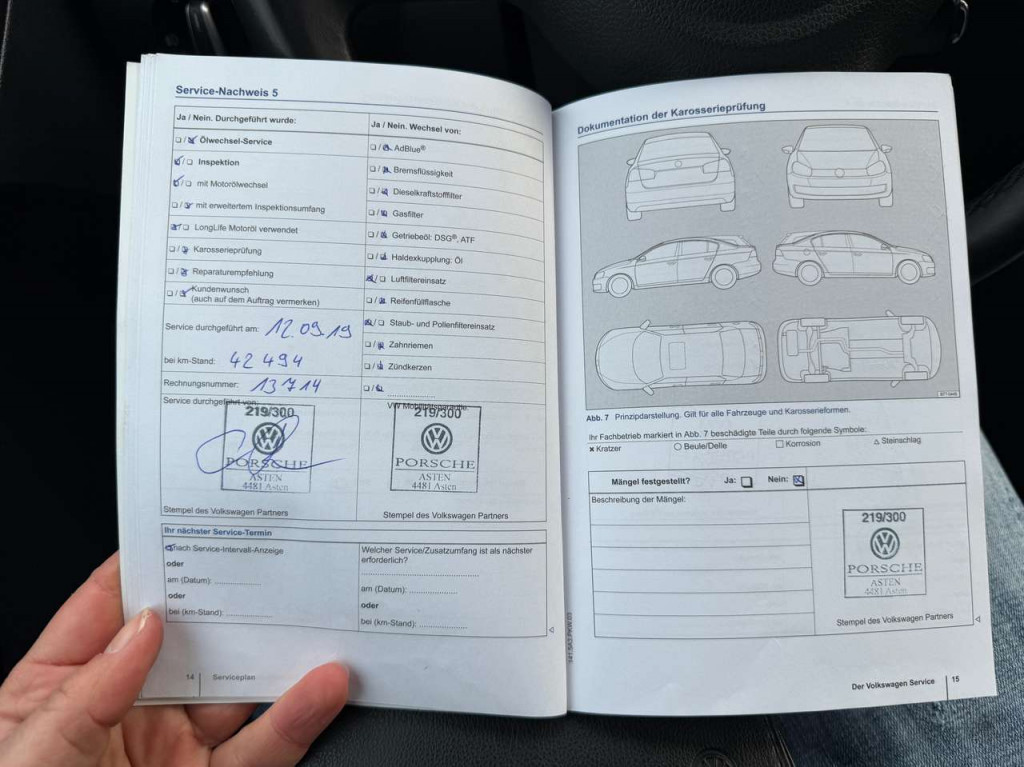 Service-Nachweis 5
Ja / Nein. Durchgeführt wurde:
Ölwechsel-Service
Inspektion
mit Motorölwechsel
mit erweitertem Inspektionsumfang
LongLife Motoröl verwendet
Karosserieprüfung
Reparaturempfehlung
Kundenwunsch
(auch auf dem Auftrag vermerken)
Service durchgeführt am: 12.09.19
bei km-Stand: 42 494
Rechnungsnummer: 13714
Service durchgeführt von:
219/300
PORSCHE
ASTEN
4481 Asten
Stempel des Volkswagen Partners
Ja / Nein. Wechsel von:
AdBlue®
Bremsflüssigkeit
Dieselkraftstofffilter
Gasfilter
Getriebeöl: DSG®, ATF
Haldexkupplung: Öl
Luftfiltereinsatz
Reifenfüllflasche
Staub- und Pollenfiltereinsatz
Zahnriemen
Zündkerzen
VW Mobilitätsgarantie:
219/300
PORSCHE
ASTEN
4481 Asten
Stempel des Volkswagen Partners
Ihr nächster Service-Termin
nach Service-Intervall-Anzeige
oder
am (Datum):
oder
bei (km-Stand):
Welcher Service/Zusatzumfang ist als nächster
erforderlich?
am (Datum):
oder
bei (km-Stand):
14 Serviceplan
Dokumentation der Karosserieprüfung
Abb. 7 Prinzipdarstellung. Gilt für alle Fahrzeuge und Karosserieformen.
Ihr Fachbetrieb markiert in Abb. 7 beschädigte Teile durch folgende Symbole:
× Kratzer ○ Beule/Delle □ Korrosion △ Steinschlag
Mängel festgestellt? Ja: Nein:
Beschreibung der Mängel:
219/300
PORSCHE
ASTEN
4481 Asten
Stempel des Volkswagen Partners
Der Volkswagen Service 15